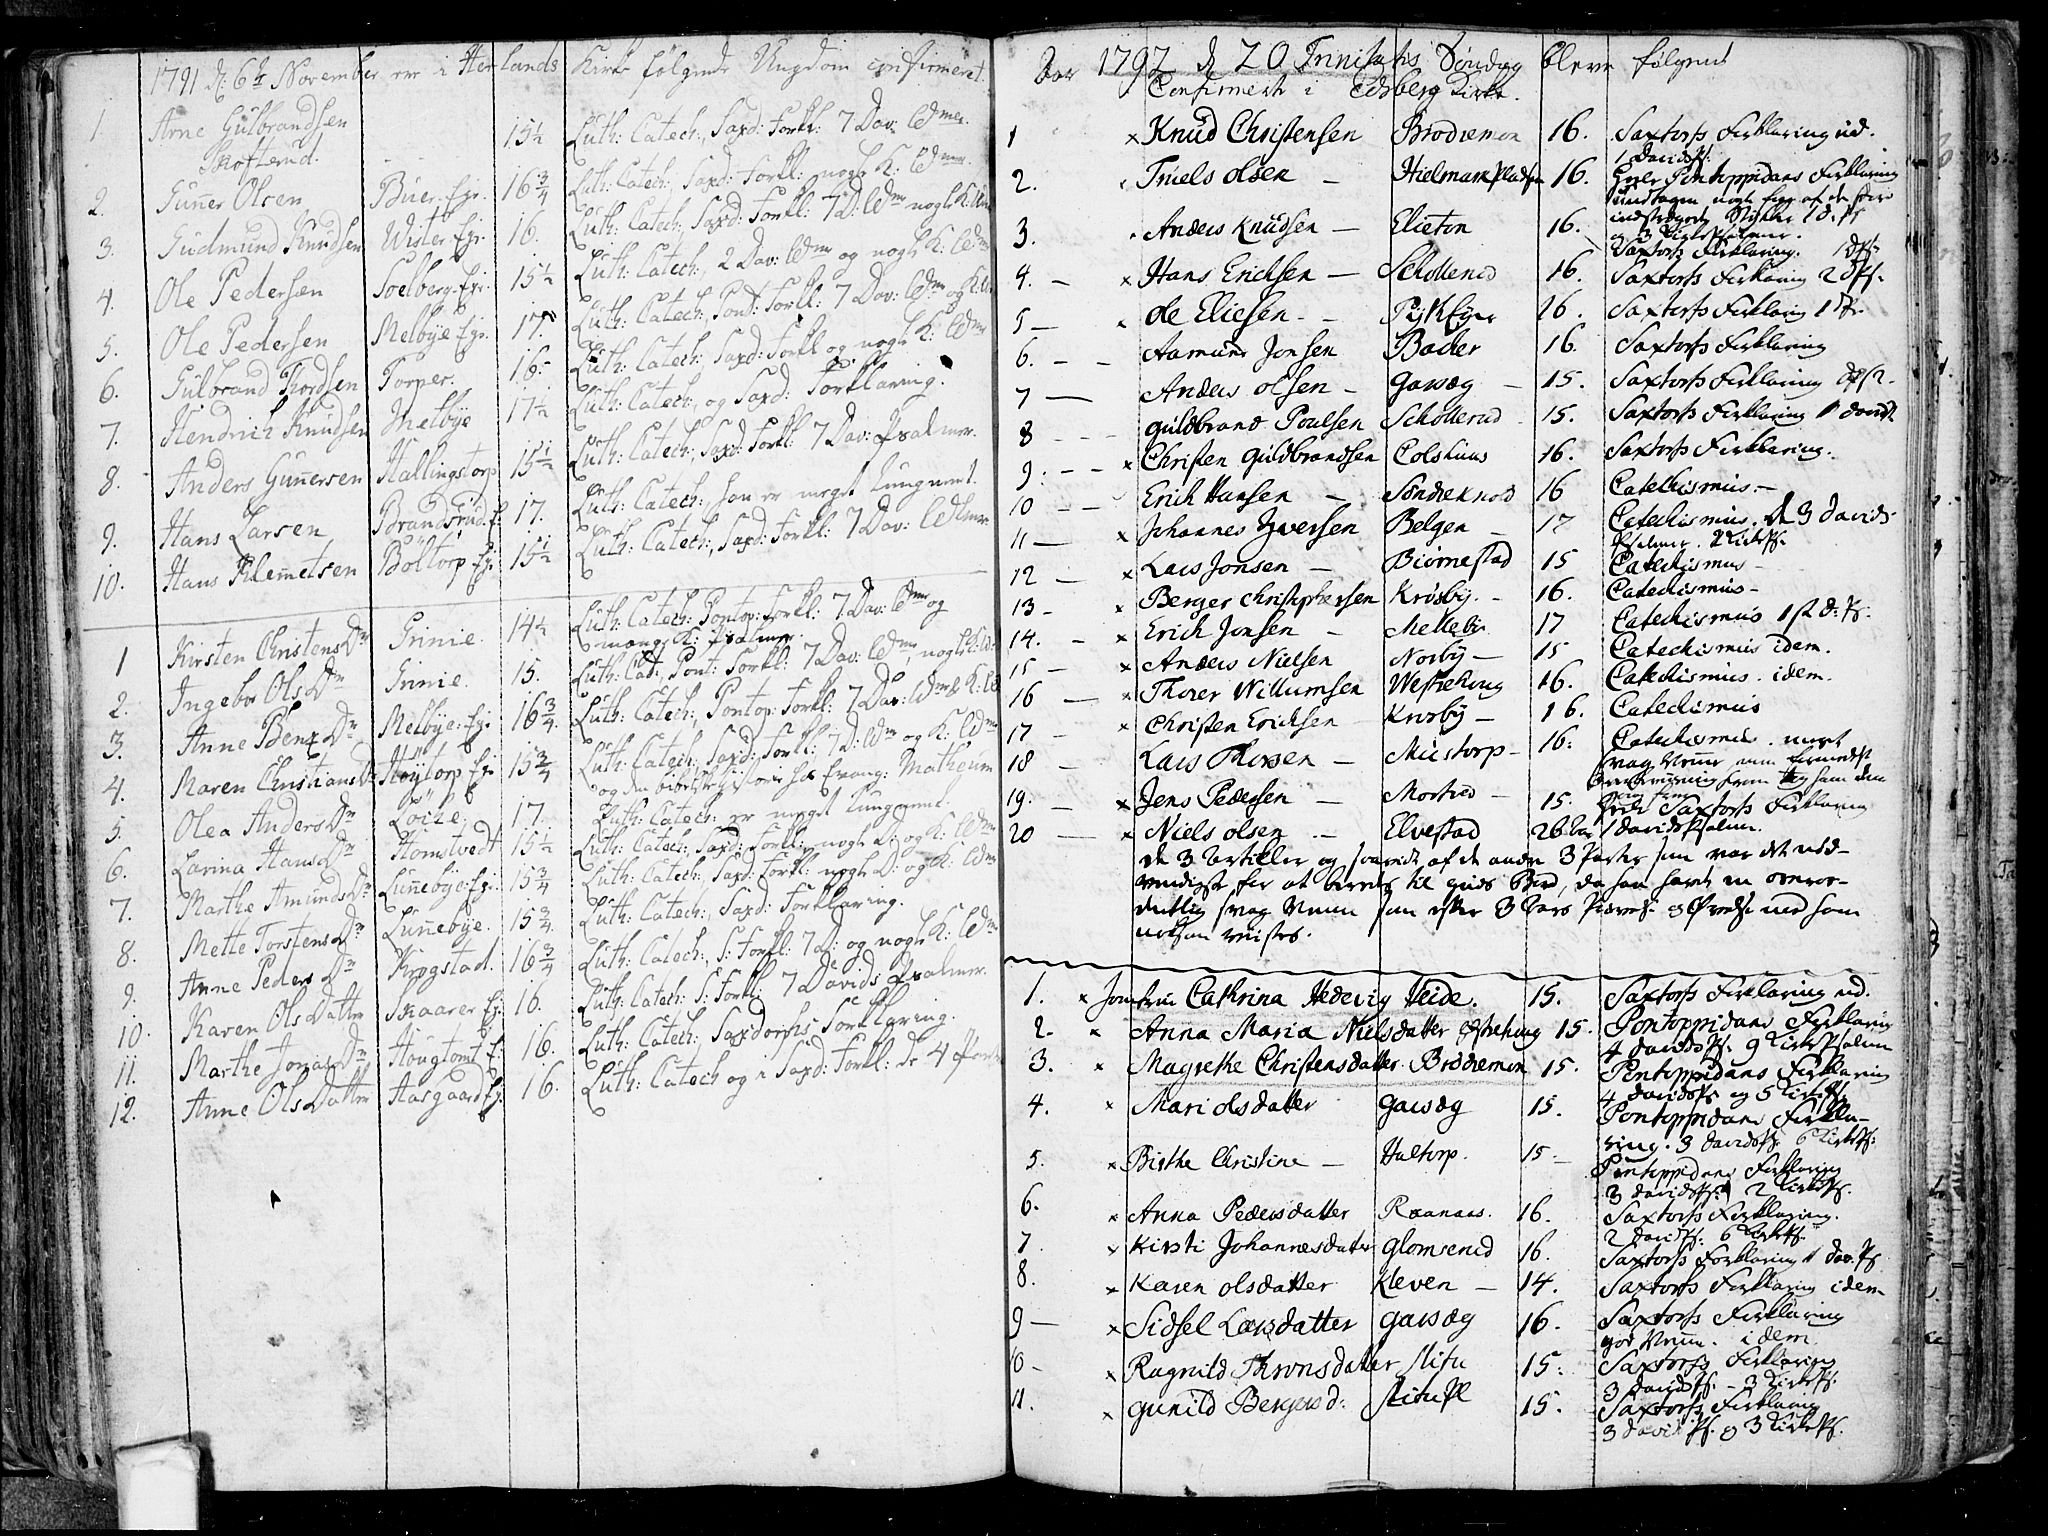 1791 d: 6te November ere i Herlands Kirke følgende Ungdom confirmeret.
1 Arne Gulbrandsen Skofterud. 15½ Luth: Catech:, Saxd: Forkl: 7 Dav:
2. Gun̄er Olsen Buer Ejr. 16¾ Luth: Catech:, Saxd: Forkl: nogle K:
3. Gudmund Knudsen Wister Ejr. 16. Luth: Catech:, Saxd: Forkl: 7 D: nogle K:
4. Ole Pedersen Soelberg Ejr. 15½ Luth: Catech:, 2 Dav: og nogle K:
5. Ole Pedersen Melbÿe Ejr. 17. Luth: Catech:, Pont: Forkl: 7 Dav: og K:
6. Gulbrand Thordsen Torper. 16. Luth: Catech:, Saxd: Forkl og nogle K:
7. Hendrich Knudsen Melbÿe 17½ Luth: Catech:, og Saxd: Forklaring.
8. Anders Gun̄ersen Hallingstorp 15½ Luth: Catech:, Saxd: Forkl: 7 Dav: Psalmer.
9. Hans Larsen Brandsrud E: 17. Luth: Catech:, han er meget tungnemt.
10. Hans Klem̄etsen Boltorp Ejr 15½ Luth: Catech:, Saxd: Forkl: 7 Dav:
1 Kirsten Christens Dr Grinie. 14½ Luth: Catech: Pontop: Forkl: 7 Dav: og
mange K: Psalmer.
2. Ingebor Ols Dr Grinie. 15. Luth: Cat:, Pont: Forkl: 7 Dav: nogle K:
3. Anne Benz Dr Melbÿe: Ejr. 16¾ Luth: Catech:, Pontop: Forkl: 7 Dav: & K:
4. Maren Christians Dr Høytorp Ejr 15¾ Luth: Catech:, Saxd: Forkl: 7 D: og K:
og den Evang: Matheum
5. Olea Anders Dr 17. Luth: Catech: er meget tungnemt.
6. Larina Hans Dr Homstvedt 15½ Luth: Catech:, Saxd: Forkl: nogle D: og K:
7. Marthe Amunds Dr Lun̄ebÿe: Ejr. 15¾ Luth: Catech:, Saxd: Forkl: nogle D: og K:
8. Mette Torstens Dr Lun̄ebÿe. 15¾ Luth: Catech:, Saxd: Forklaring.
9. Anne Peders Dr Krogstad. 16¾ Luth: Catech:, S: Forkl: 7 D: og nogle K:
10. Karen Ols Datter Skaarer Ej 16. Luth: Catech: S: Forkl: 7 Davids Psalmer.
11. Marthe Jonas Dr Hougtomt E: 16. Luth: Catech: Saxdorphs Forklaring.
12. Anne Ols Datter Aasgaard Ej. 16. Luth: Catech og i Saxd: Forkl: de 4 Parter
Aar 1792 d 20 Trinitatis Søndag bleve følgend
Confirmerte i Edsberg Kirke.
1 × Knud Christensen Brødremon 16. Saxtorfs Forklaring ud.
1 Davidsps:
2. Truels olsen – Hielmark pladsen 16. Pontoppidans Forklaring
3. Anders Knudsen – Elieton 16.
Saxtorfs Forklaring. 1 Dps.
4. – × Hans Erichsen – Schollerud 16. Saxtorfs Forklaring 2 dPs.
5 – × ole Eliesen – 16. Saxtorfs Forklaring 1 Ps.
6. – – Aamund Jonsen Bacher 16. Saxtorfs Forklaring
7 – Anders olsen – Garsæg – 15. Saxtorfs Forklaring
8 – – – guldbrand Poulsen Schollerud 15. Saxtorfs Forklaring 1 Davids
9. – – × Christen guldbrandsen Colshuus 16. Saxtorfs Forklaring.
10 – – Erich Hansen – Søndreknold 16 Catechismus. –
11 – × Johannes Iwersen Belgen – 17 Catechismus. de 3 Davids
12 – × Lars Jonsen – Biørnestad 15 Catechismus –
13 – × Berger Christophersen Krosby. – 16. Catechismus –
14. – × Erich Jonsen – Melleby 17 Catechismus
15 – × Anders Nielsen Norby – 15 Catechismus idem.
16 – × Thorer Willumsen Westrehoug 16. Catechismus. idem.
17 – × Christen Erichsen – Krosby – 16. Catechismus
18 – Lars Thorsen – Mustorp – 16: Catechismus. meget
svag
19. – × Jens Pedersen – Mortved – 15. Saxtorfs Forklaring
20 – × Niels olsen – Elvestad 26 Aar 1 Davids Psalm.
de 3 Artikler og af de andre 3 Parter som var det nød-
vendigste for at til guds Bord, da han havde en overor-
dentlig svag som efter 3 Aars
1. × Jomfrue Cathrina Hedevig Heide. 15. Saxtorfs Forklaring ud.
2. × Anna Maria Nielsdatter Østrehoug 15. Pontoppidans Forklaring
4 Davidsps. 9 Kirkepsalmer
3. × Magrethe Christensdatter Brødremon 15. Pontoppidans Forklaring
4 Davidsps og 5 Kirkeps.
4. × Mari olsdatter garsæg 15. Pontoppidans Forkla-
ring. 3 Davidsps. 6 Kirkeps:
5. × Birthe Christine – Haltorp. 15 – Pontoppidans Forklaring
3 davidsps. 2 Kirkeps.
6. × Anna Pedersdatter Raanaas. 16. Saxtorfs Forklaring.
2 Davidsps: 6 Kirkeps.
7. × Kirsti Johannesdatter glomserud 16. Saxtorfs Forklaring 1 Dav. Ps
8. × Karen olsdatter Kleven – 14. Saxtorfs Forklaring idem
9 – × Sidsel Larsdatter garsæg 16. Saxtorfs Forklaring
idem
10 – × Ragnild Thronsdatter Slitu 15. Saxtorfs Forklaring
3 Davidsps. – 3 Kirkeps.
11. × gunild Bergersd: 15. Saxtorfs Forklaring
3 davidsps. og 3 Kirkeps.